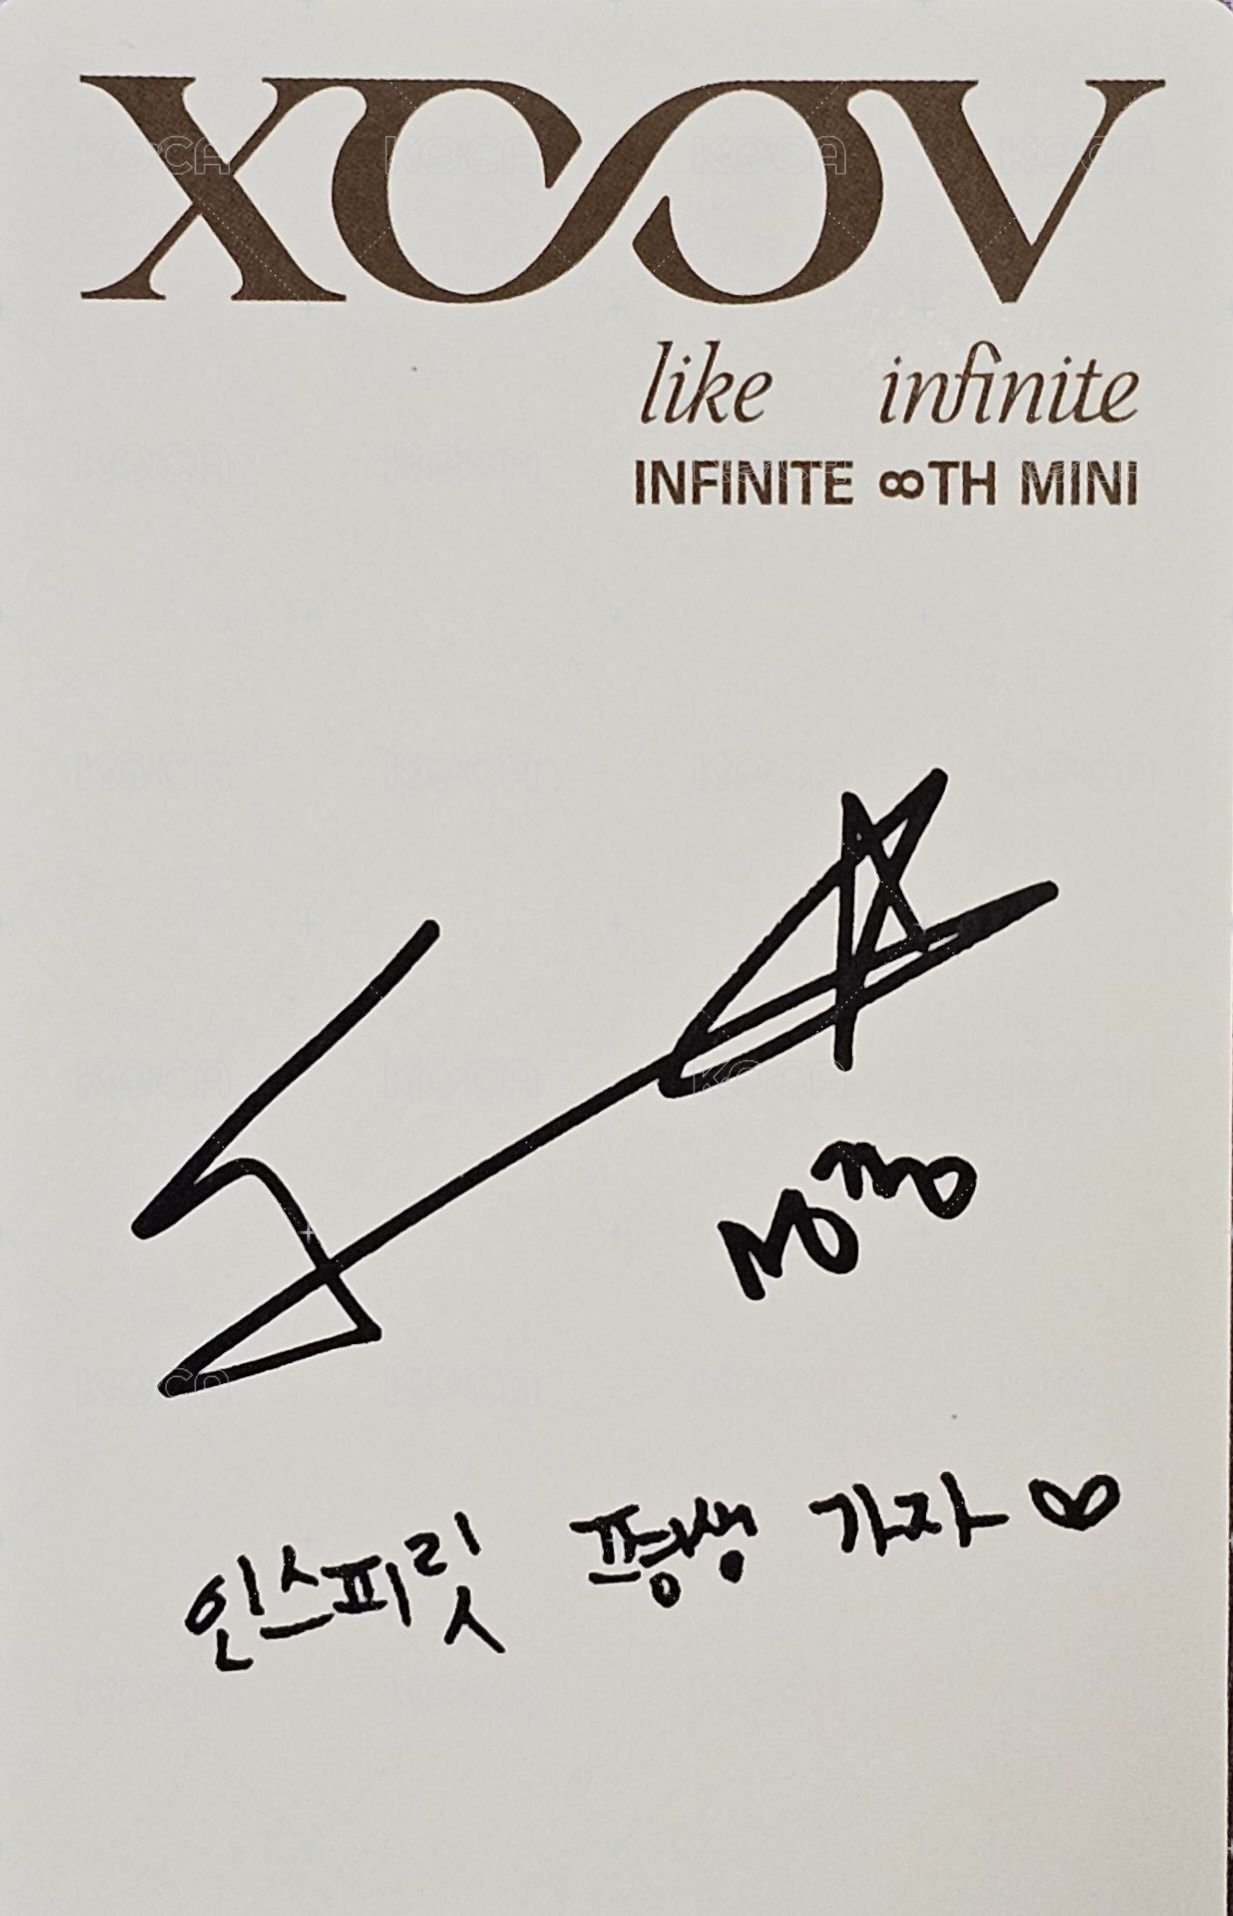 XOOV
like infinite
INFINITE ∞TH MINI
인스피릿 평생 가자♡
KOCA